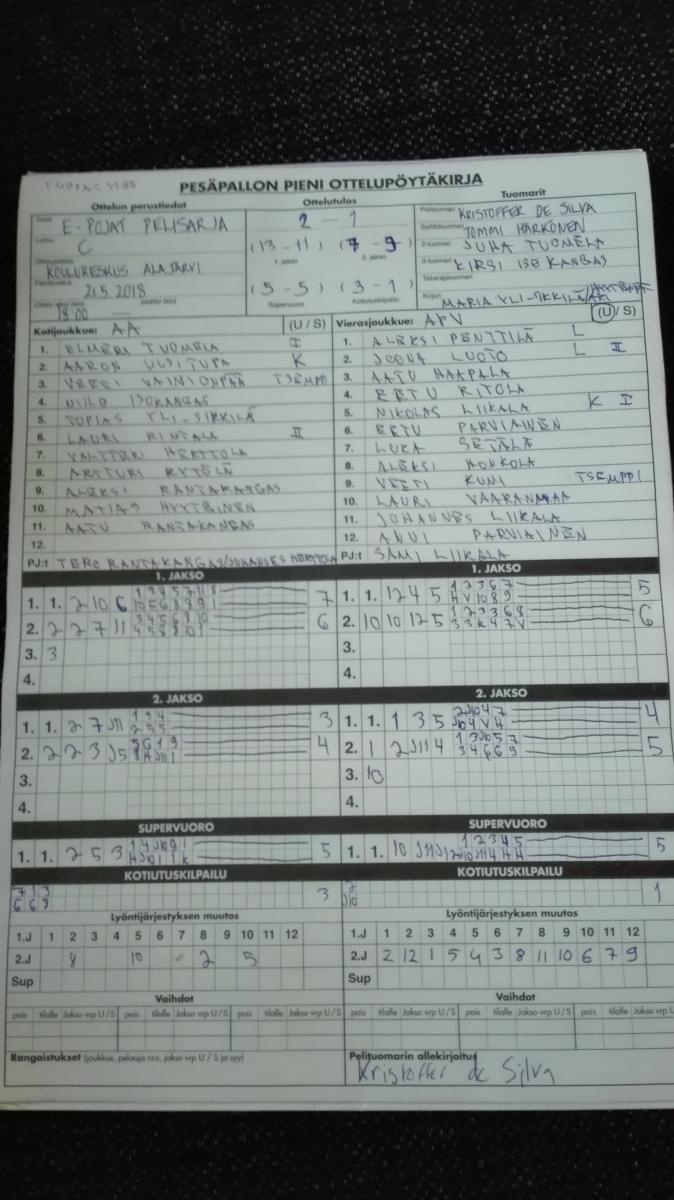 PESÄPALLON PIENI OTTELUPÖYTÄKIRJA
Ottelun perustiedot
Ottelutulos
Tuomarit
E-POJAT PELISARJA
C
KOULUKESKUS ALAJÄRVI
21.5.2018
18:00
2 - 1
(13 - 11) (7 - 9)
1. jakso 2. jakso
(5 - 5) (3 - 1)
Supervuoro Kotiutuskilpailu
Pelituomari KRISTOFFER DE SILVA
Syöttötuomari TOMMI HARKONEN
2-tuomari JUHA TUOMELA
3-tuomari KIRSI ISOKANGAS
Takarajatuomari
Kirjuri MARIA YLI-SIKKILÄ/
Kotijoukkue: AA (U / S)
1. ELMERI TUOMELA I
2. AARON UUSITUPA K
3. VEETI VAINIONPÄÄ TSEMPPI
4. NIILO ISOKANGAS
5. TOPIAS YLI-SIKKILÄ
6. LAURI RINTALA II
7. VALTTERI HERTTOLA
8. ARTTURI KYTÖLÄ
9. ALEKSI RANTAKANGAS
10. MATIAS HYYTINEN
11. AATU RANTAKANGAS
12.
PJ:t TERO RANTAKANGAS/JOHANNES HERTTOLA
Vierasjoukkue: APV (U / S)
1. ALEKSI PENTTILÄ L
2. JOONA LUOTO L II
3. AATU HAAPALA
4. EETU RITOLA
5. NIKOLAS LIIKALA K I
6. EETU PARVIAINEN
7. LUKA SETÄLÄ
8. ALEKSI HONKOLA
9. VEETI KUNI TSEMPPI
10. LAURI VAARANMAA
11. JOHANNES LIIKALA
12. ANUI PARVIAINEN
PJ:t SAMI LIIKALA
1. JAKSO
1. 1. 2 10 6 7
2. 2 2 7 11 6
3. 3
4.
1. JAKSO
1. 1. 12 4 5 5
2. 10 10 12 5 6
3.
4.
2. JAKSO
1. 1. 2 7 J11 3
2. 2 2 3 J5 4
3.
4.
2. JAKSO
1. 1. 1 3 5 4
2. 1 2 J11 4 5
3. 10
4.
SUPERVUORO
1. 1. 2 5 3 5
SUPERVUORO
1. 1. 10 5
KOTIUTUSKILPAILU
7 1 3
6 6 9 3
KOTIUTUSKILPAILU
2
J10 1
Lyöntijärjestyksen muutos
1.J 1 2 3 4 5 6 7 8 9 10 11 12
2.J 8 10 2 5
Sup
Lyöntijärjestyksen muutos
1.J 1 2 3 4 5 6 7 8 9 10 11 12
2.J 2 12 1 5 4 3 8 11 10 6 7 9
Sup
Vaihdot
pois tilalle Jakso vrp U / S pois tilalle Jakso vrp U / S
Vaihdot
pois tilalle Jakso vrp U / S pois tilalle Jakso vrp U
Rangaistukset (joukkue, pelaaja nro, jakso vrp U / S ja syy)
Pelituomarin allekirjoitus
Kristoffer de Silva